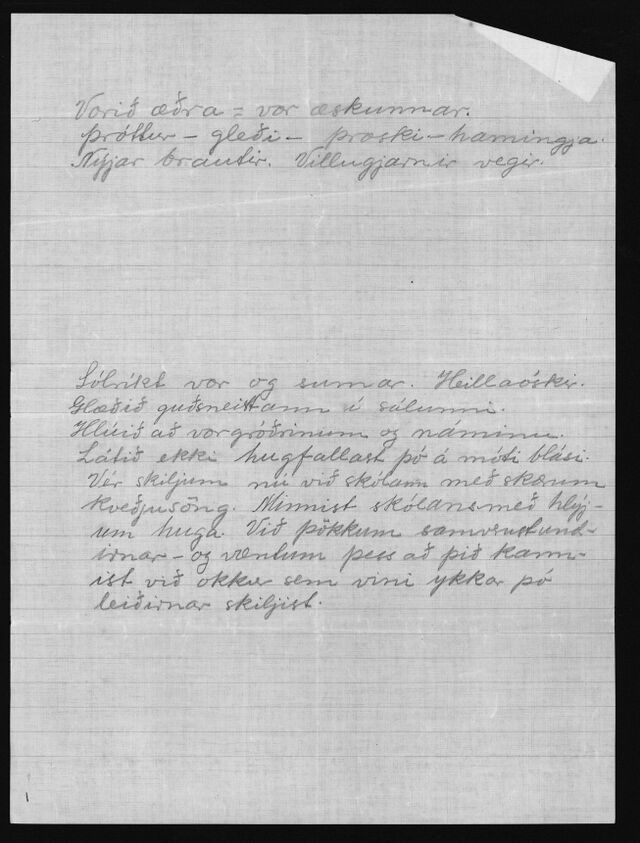 Vorið æðra = vor æskunnar.
Þróttur - gleði - þroski - hamingja.
Nýjar brautir. Villugjarnir vegir.
Sólríkt vor og sumar. Heillaóskir.
Glæðið guðsneistann í sálunni.
Hlúið að vorgróðrinum og náminu.
Látið ekki hugfallast þó á móti blási.
Vér skiljum nú við skólann með skærum
kveðjusöng. Minnist skólans með hlýj-
um huga. Við þökkum samverustund-
irnar - og væntum þess að þið kann-
ist við okkur sem vini ykkar þó
leiðirnar skiljist.